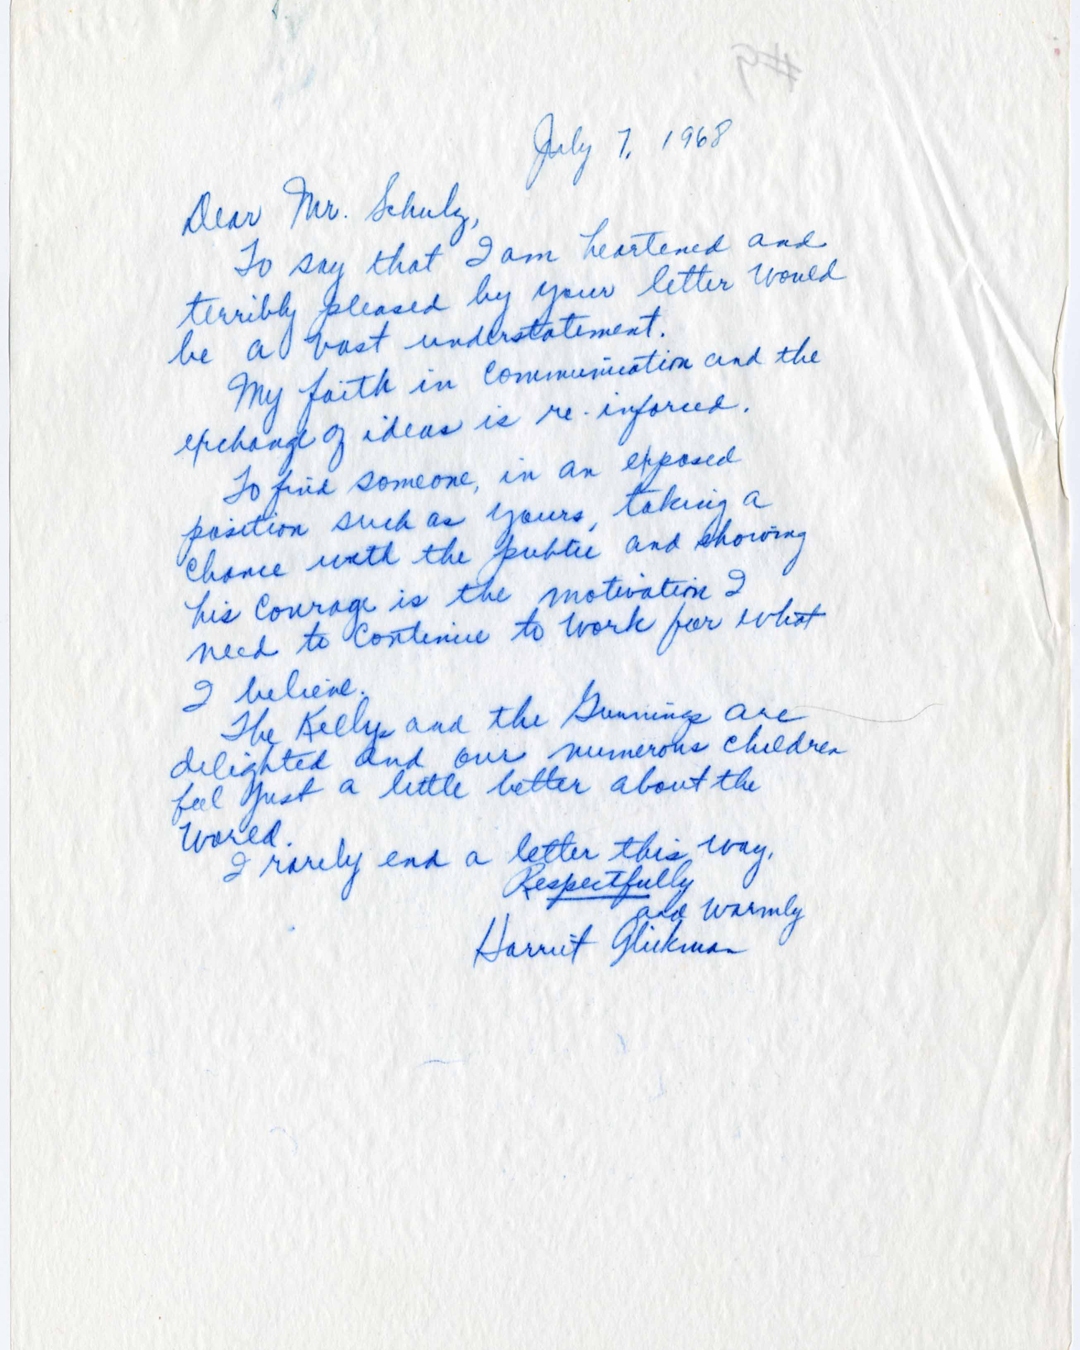 #9
July 7, 1968
Dear Mr. Schulz,
To say that I am heartened and
terribly pleased by your letter would
be a vast understatement.
My faith in communication and the
exchange of ideas is re-inforced.
To find someone, in an exposed
position such as yours, taking a
chance with the public and showing
his courage is the motivation I
need to continue to work for what
I believe.
The Kellys and the Gunnings are
delighted and our numerous children
feel just a little better about the
world.
I rarely end a letter this way,
Respectfully
and warmly
Harriet Glickman